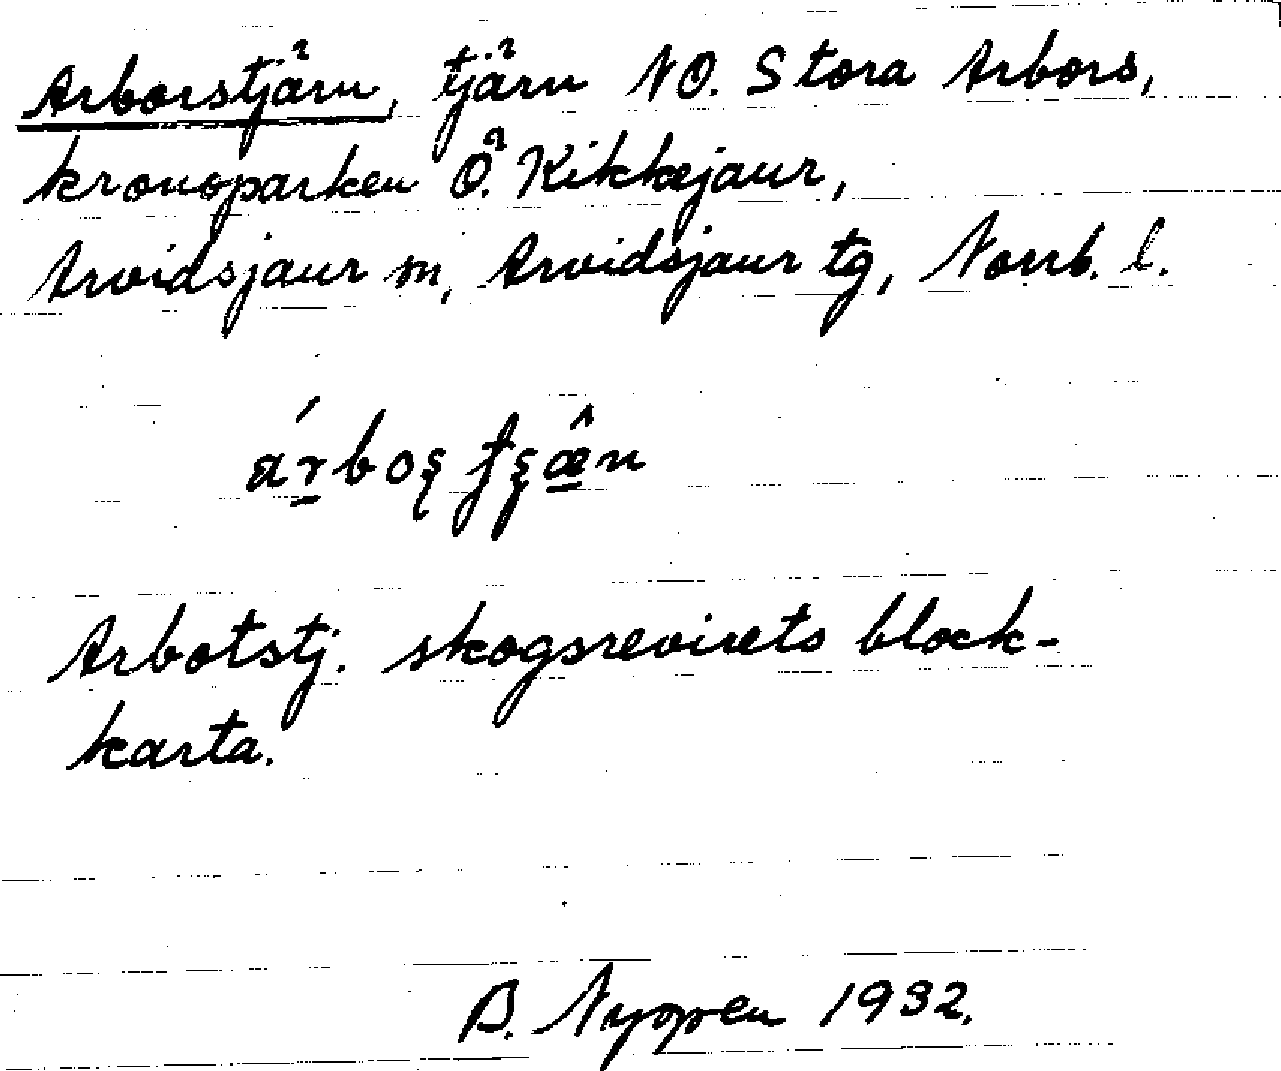 Arborstjärn, tjärn NO. Stora Arbors,
kronoparken Ö. Kikkejaur,
Arvidsjaur sn, Arvidsjaur tg, Norrb. l.
Arbotstj. skogsrevirets block-
karta.
B. 1932.